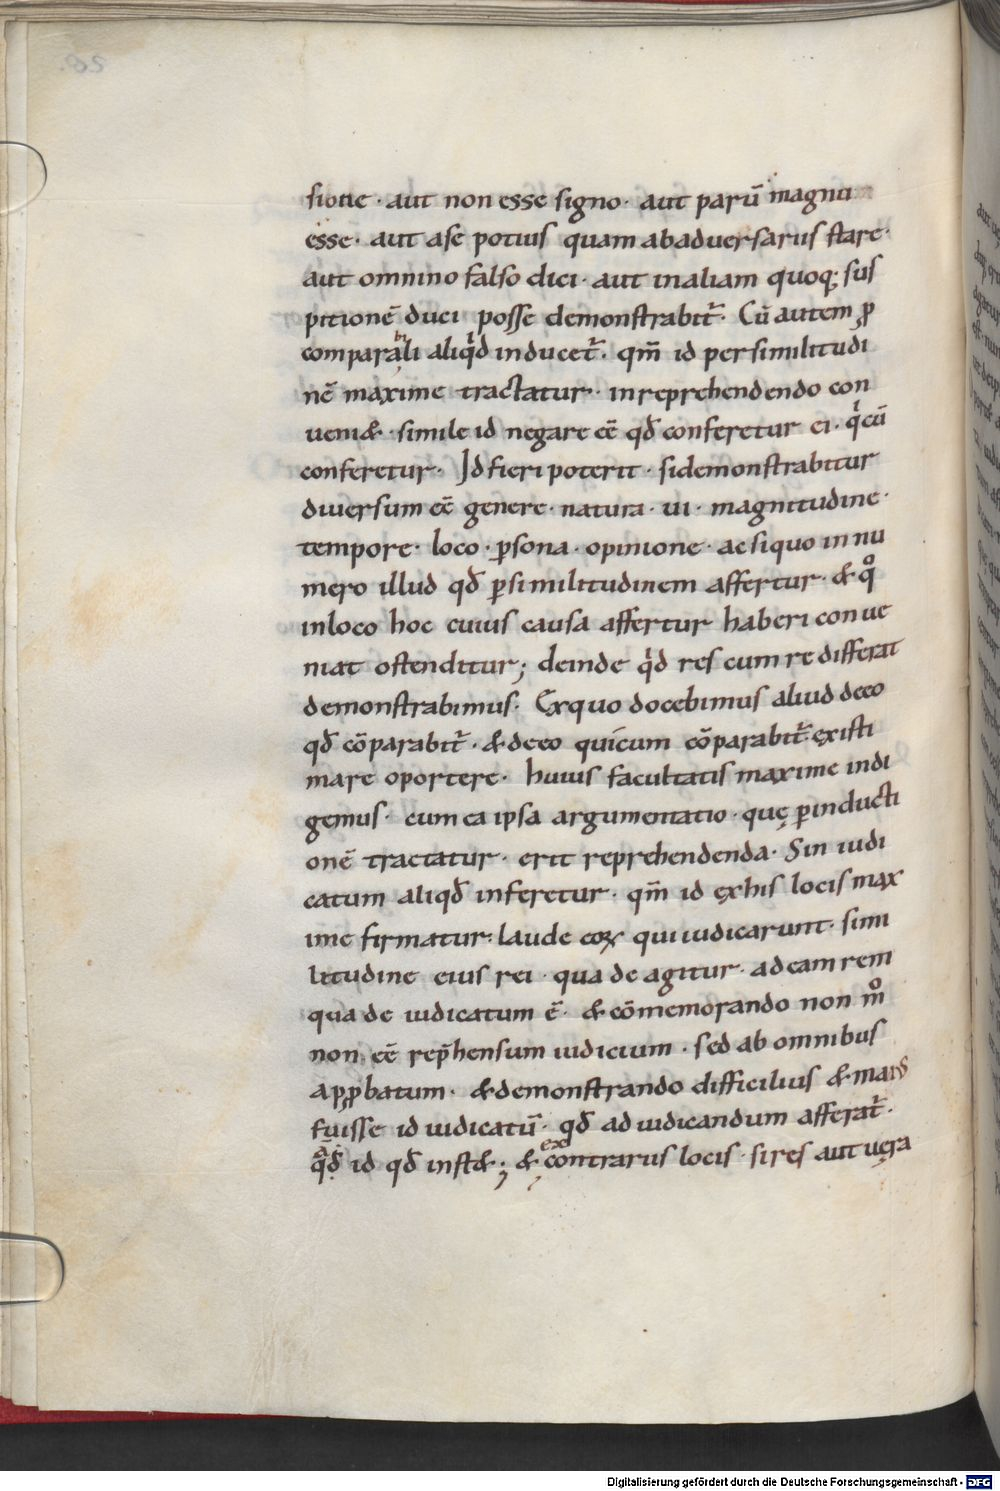 sione · aut non esse signo · aut parū magnum
esse · aut ase potius quam abadversarus stare ·
aut omnino falso dici · aut inaliam quoq; sus
pitionē duci posse demonstrabit᷑ · Cū autem ꝓ
comparabili aliqͥd inducet᷑ · qm̄ id persimilitudi
nē maxime tractatur · inreprehendendo con
ueni& · simile id negare eē qđ conferetur ei · qͥcū
conferetur · Id fieri poterit · sidemonstrabitur
diuersum eē genere · natura · ui · magnitudine ·
tempore · loco · ꝑsona · opinione · acsiquo in nu
mero illud qđ ꝑsimilitudinem affertur · & qͦ
inloco hoc cuius causa affertur haberi conue
niat ostenditur; deinde qͥd res cum re differat
demonstrabimus · Exquo docebimus aliud deeo
qđ cōparabit᷑ · & deeo quicum cōparabit᷑ existi
mare oportere · huius facultatis maxime indi
gemus · cum ea ipsa argumentatio · quę ꝑinducti
onē tractatur · erit reprehendenda · Sin iudi
catum aliqđ inferetur · qm̄ id exhis locis max
ime firmatur · laude eoꝝ qui iudicarunt · simi
litudine eius rei · qua de agitur · ad eam rem
qua de iudicatum ē · & cōmemorando non mͦ
non eē rep̄hensum iudicium · sed ab omnibus
apꝓbatum · & demonstrando difficilius & maius
fuisse id iudicatū · qđ ad iudicandum afferat᷑ ·
qđ id qđ inst&; & ex contrarus locis · si res aut uera